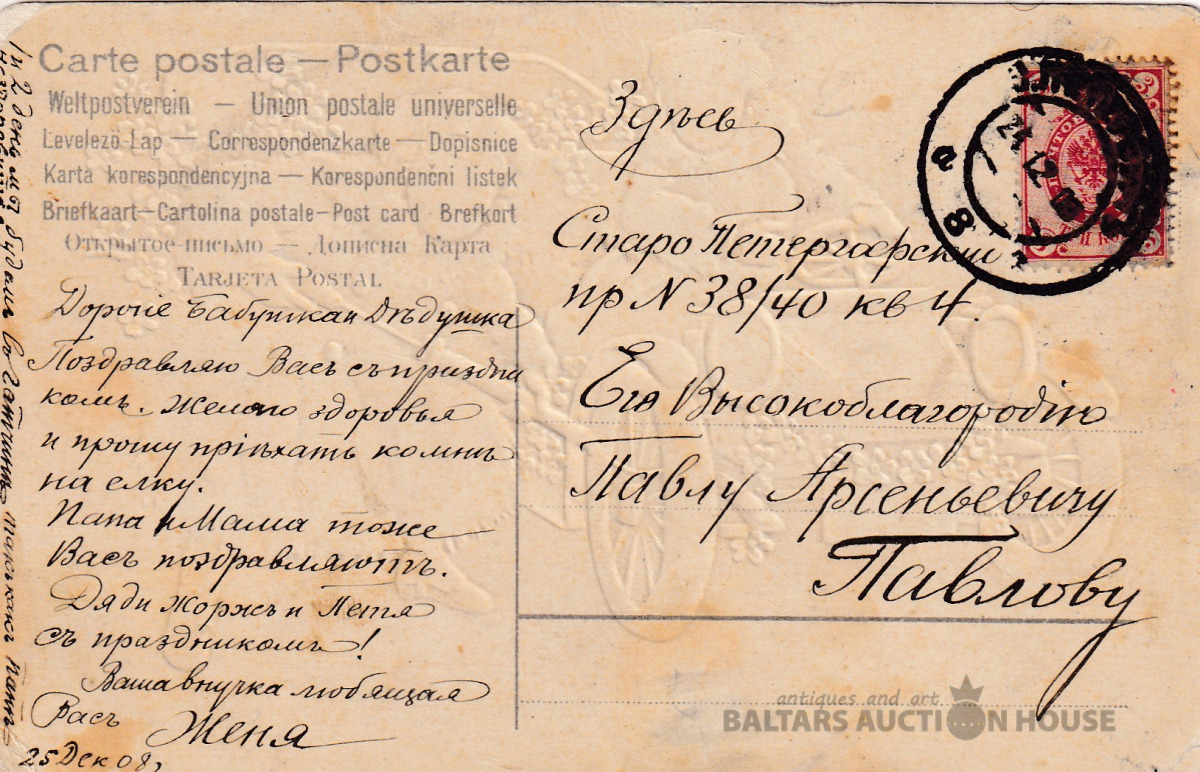 Carte postale — Postkarte
Weltpostverein — Union postale universelle
Levelező-Lap — Correspondenzkarte — Dopisnice
Karta korespondencyjna — Korespondenčni listek
Briefkaart—Cartolina postale—Post card Brefkort
Открытое-письмо — Дописна Карта
TARJETA POSTAL
Дорогіе Бабушка и Дѣдушка
Поздравляю Васъ съ праздни
комъ. Желаю здоровья
и прошу пріѣхать ко мнѣ
на елку.
Папа и Мама тоже
Васъ поздравляютъ.
Дяди Жоржъ и Петя
съ праздникомъ!
Ваша внучка любящая
Васъ Женя
25 Дек 08,
И 2 день мы будемъ въ Гатчинѣ такъ какъ
Здѣсь
Старо Петергофский
пр N 38/40 кв 4.
Его Высокоблагородію
Павлу Арсеньевичу
Павлову
24 12 08
8
antiques and art
BALTARS AUCTION HOUSE